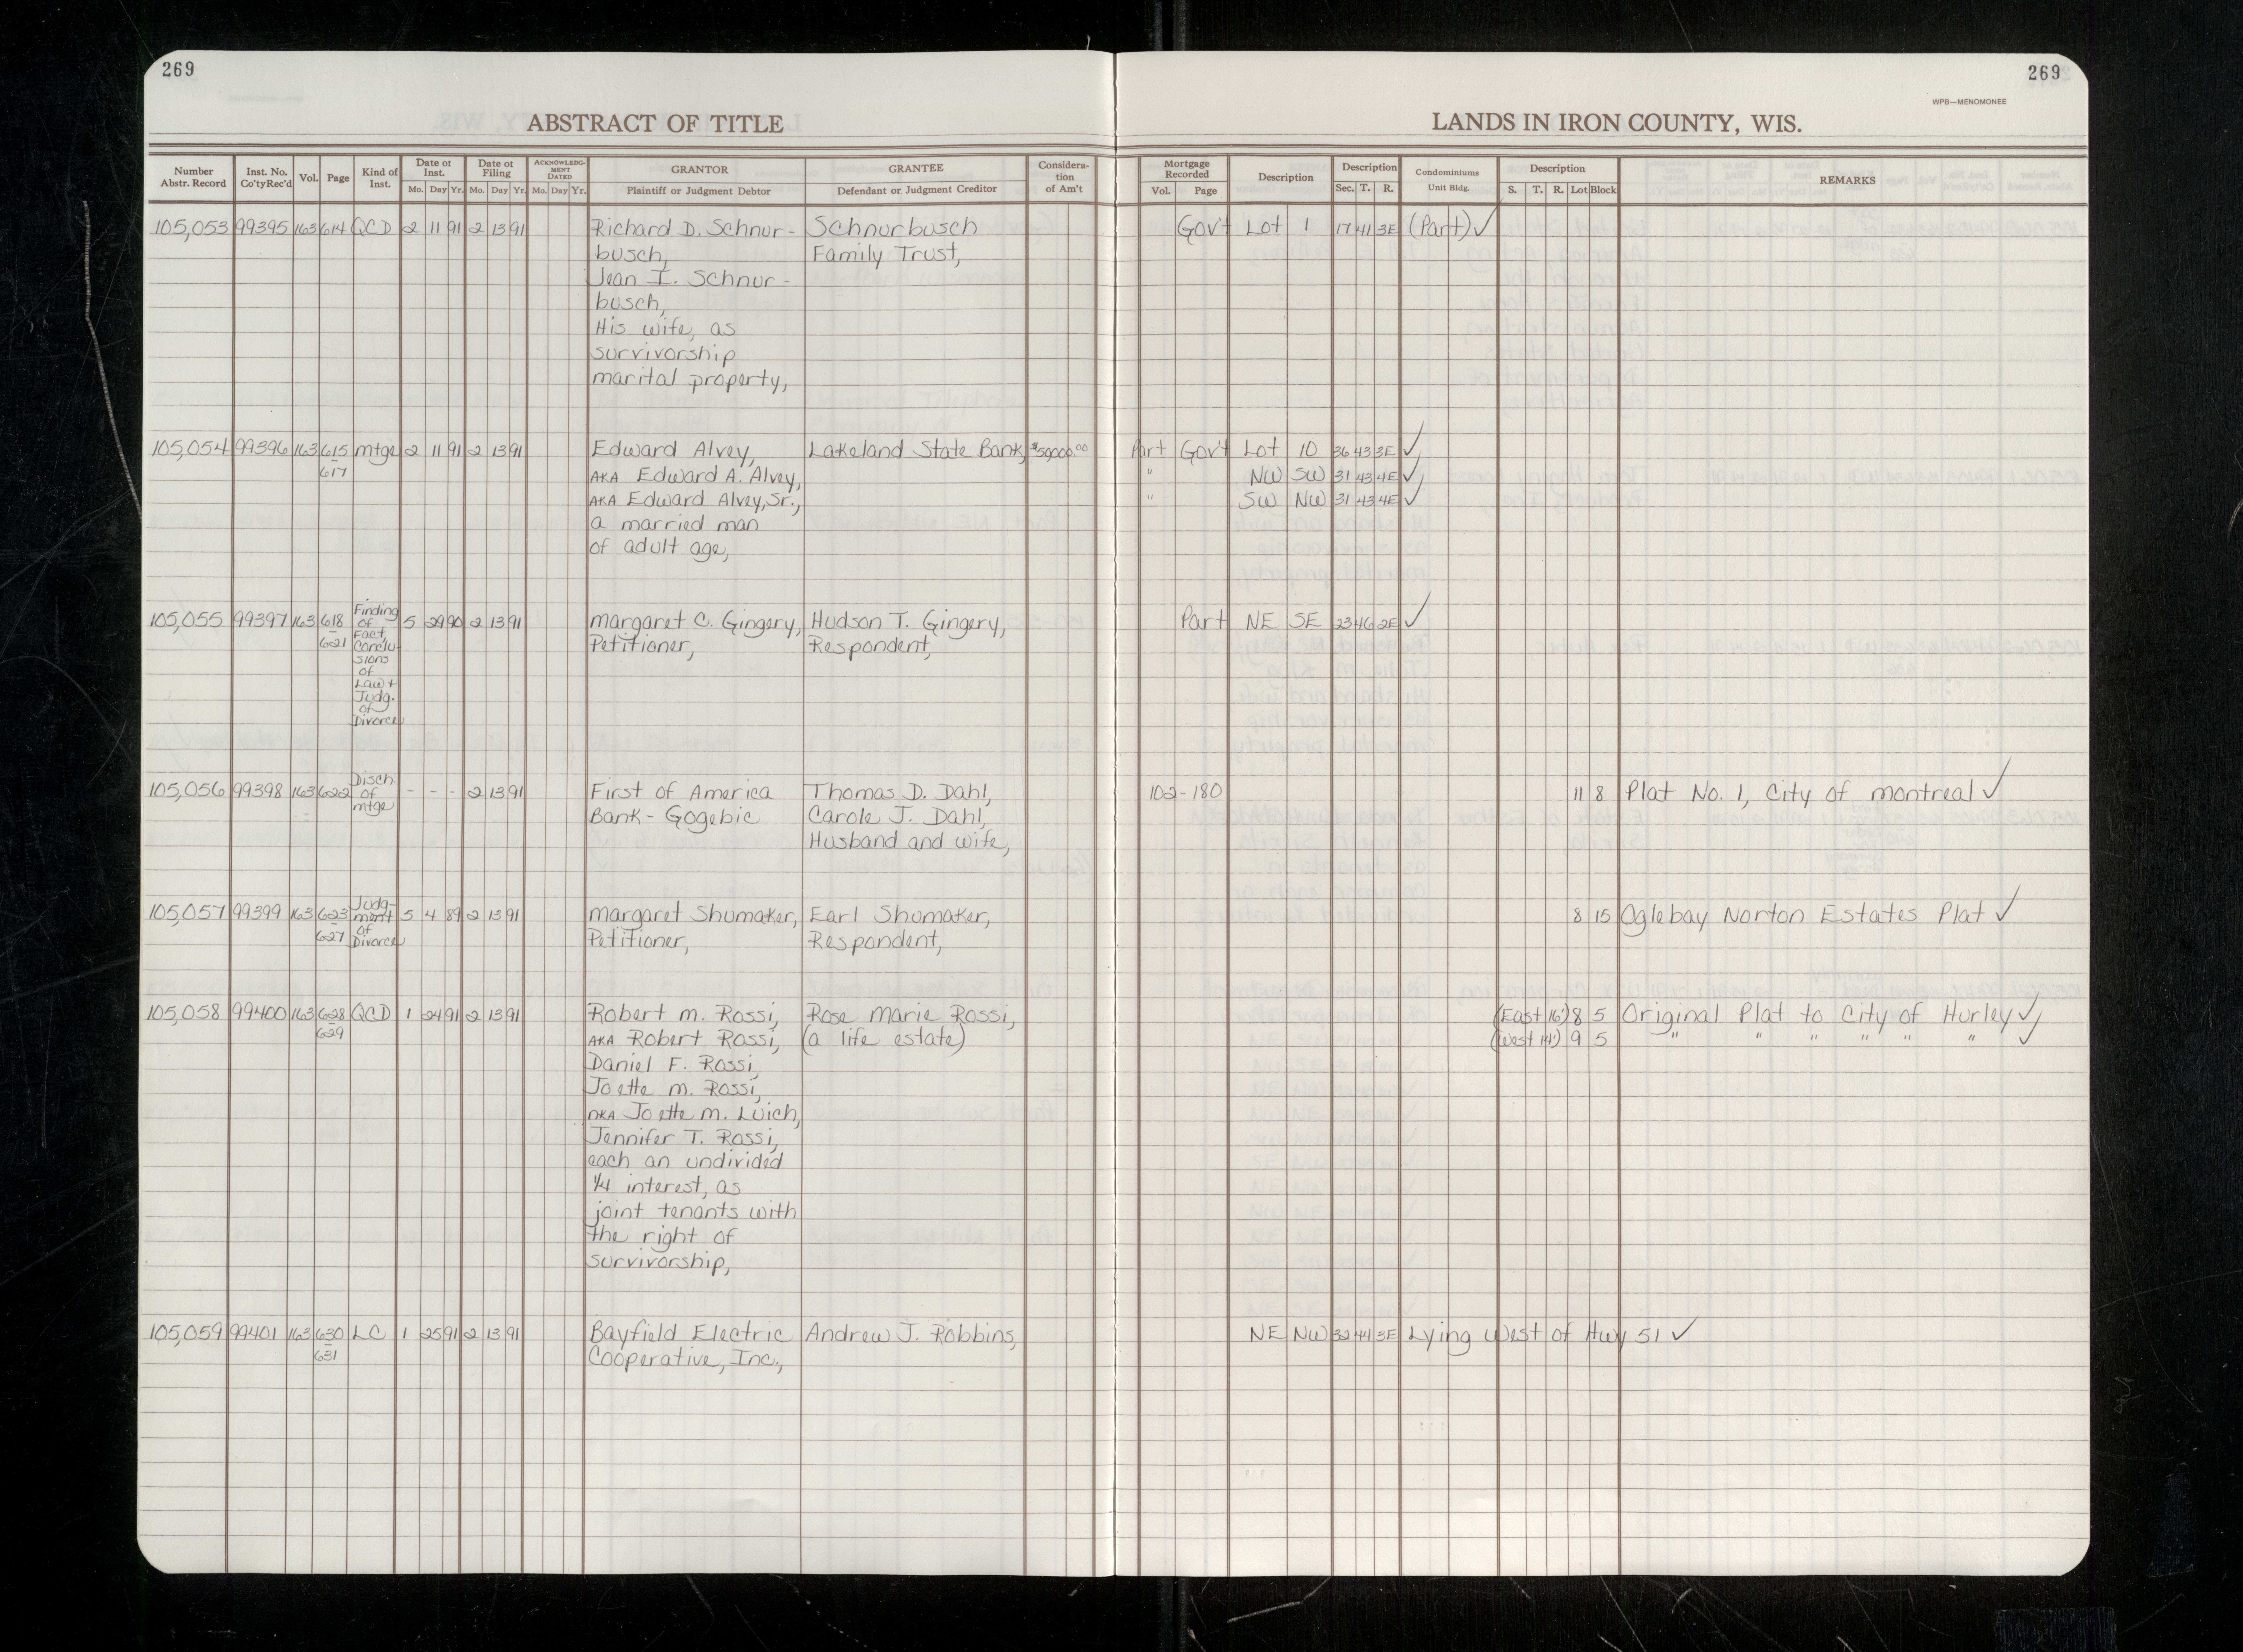 269
269
WPB—MENOMONEE
ABSTRACT OF TITLE
LANDS IN IRON COUNTY, WIS.
Number Abstr. Record | Inst. No. Co'ty Rec'd | Vol. | Page | Kind of Inst. | Date of Inst. Mo. Day Yr. | Date of Filing Mo. Day Yr. | ACKNOWLEDGMENT DATED Mo. Day Yr. | GRANTOR Plaintiff or Judgment Debtor | GRANTEE Defendant or Judgment Creditor | Consideration of Am't | Mortgage Recorded Vol. Page | Description | Description Sec. T. R. | Condominiums Unit Bldg. | Description S. T. R. Lot Block | REMARKS
105,053 99395 163 614 QCD 2 11 91 2 13 91 Richard D. Schnur- Schnurbusch Gov't Lot 1 17 41 3E (Part) ✓
busch, Family Trust,
Jean I. Schnur-
busch,
His wife, as
survivorship
marital property,
105,054 99396 163 615 mtge 2 11 91 2 13 91 Edward Alvey, Lakeland State Bank, $50,000.00 Part Gov't Lot 10 36 43 3E ✓
617 AKA Edward A. Alvey, " NW SW 31 43 4E ✓
AKA Edward Alvey, Sr., " SW NW 31 43 4E ✓
a married man
of adult age,
105,055 99397 163 618 Finding of 5 29 90 2 13 91 Margaret C. Gingery, Hudson T. Gingery, Part NE SE 23 46 2E ✓
621 Fact, Petitioner, Respondent,
Conclu-
sions
of
Law +
Judg.
of
Divorce
105,056 99398 163 622 Disch. of - - - 2 13 91 First of America Thomas D. Dahl, 102-180 11 8 Plat No. 1, City of Montreal ✓
mtge Bank - Gogebic Carole J. Dahl,
Husband and wife,
105,057 99399 163 623 Judg-ment 5 4 89 2 13 91 Margaret Shumaker, Earl Shumaker, 8 15 Oglebay Norton Estates Plat ✓
627 of Divorce Petitioner, Respondent,
105,058 99400 163 628 QCD 1 24 91 2 13 91 Robert M. Rossi, Rose Marie Rossi, (East 16') 8 5 Original Plat to City of Hurley ✓
629 AKA Robert Rossi, (a life estate) (West 14') 9 5 " " " " " " ✓
Daniel F. Rossi,
Joette M. Rossi,
nKA Joette M. Luich,
Jennifer T. Rossi,
each an undivided
1/4 interest, as
joint tenants with
the right of
survivorship,
105,059 99401 163 630 LC 1 25 91 2 13 91 Bayfield Electric Andrew J. Robbins, NE NW 32 44 3E Lying West of Hwy 51 ✓
631 Cooperative, Inc.,